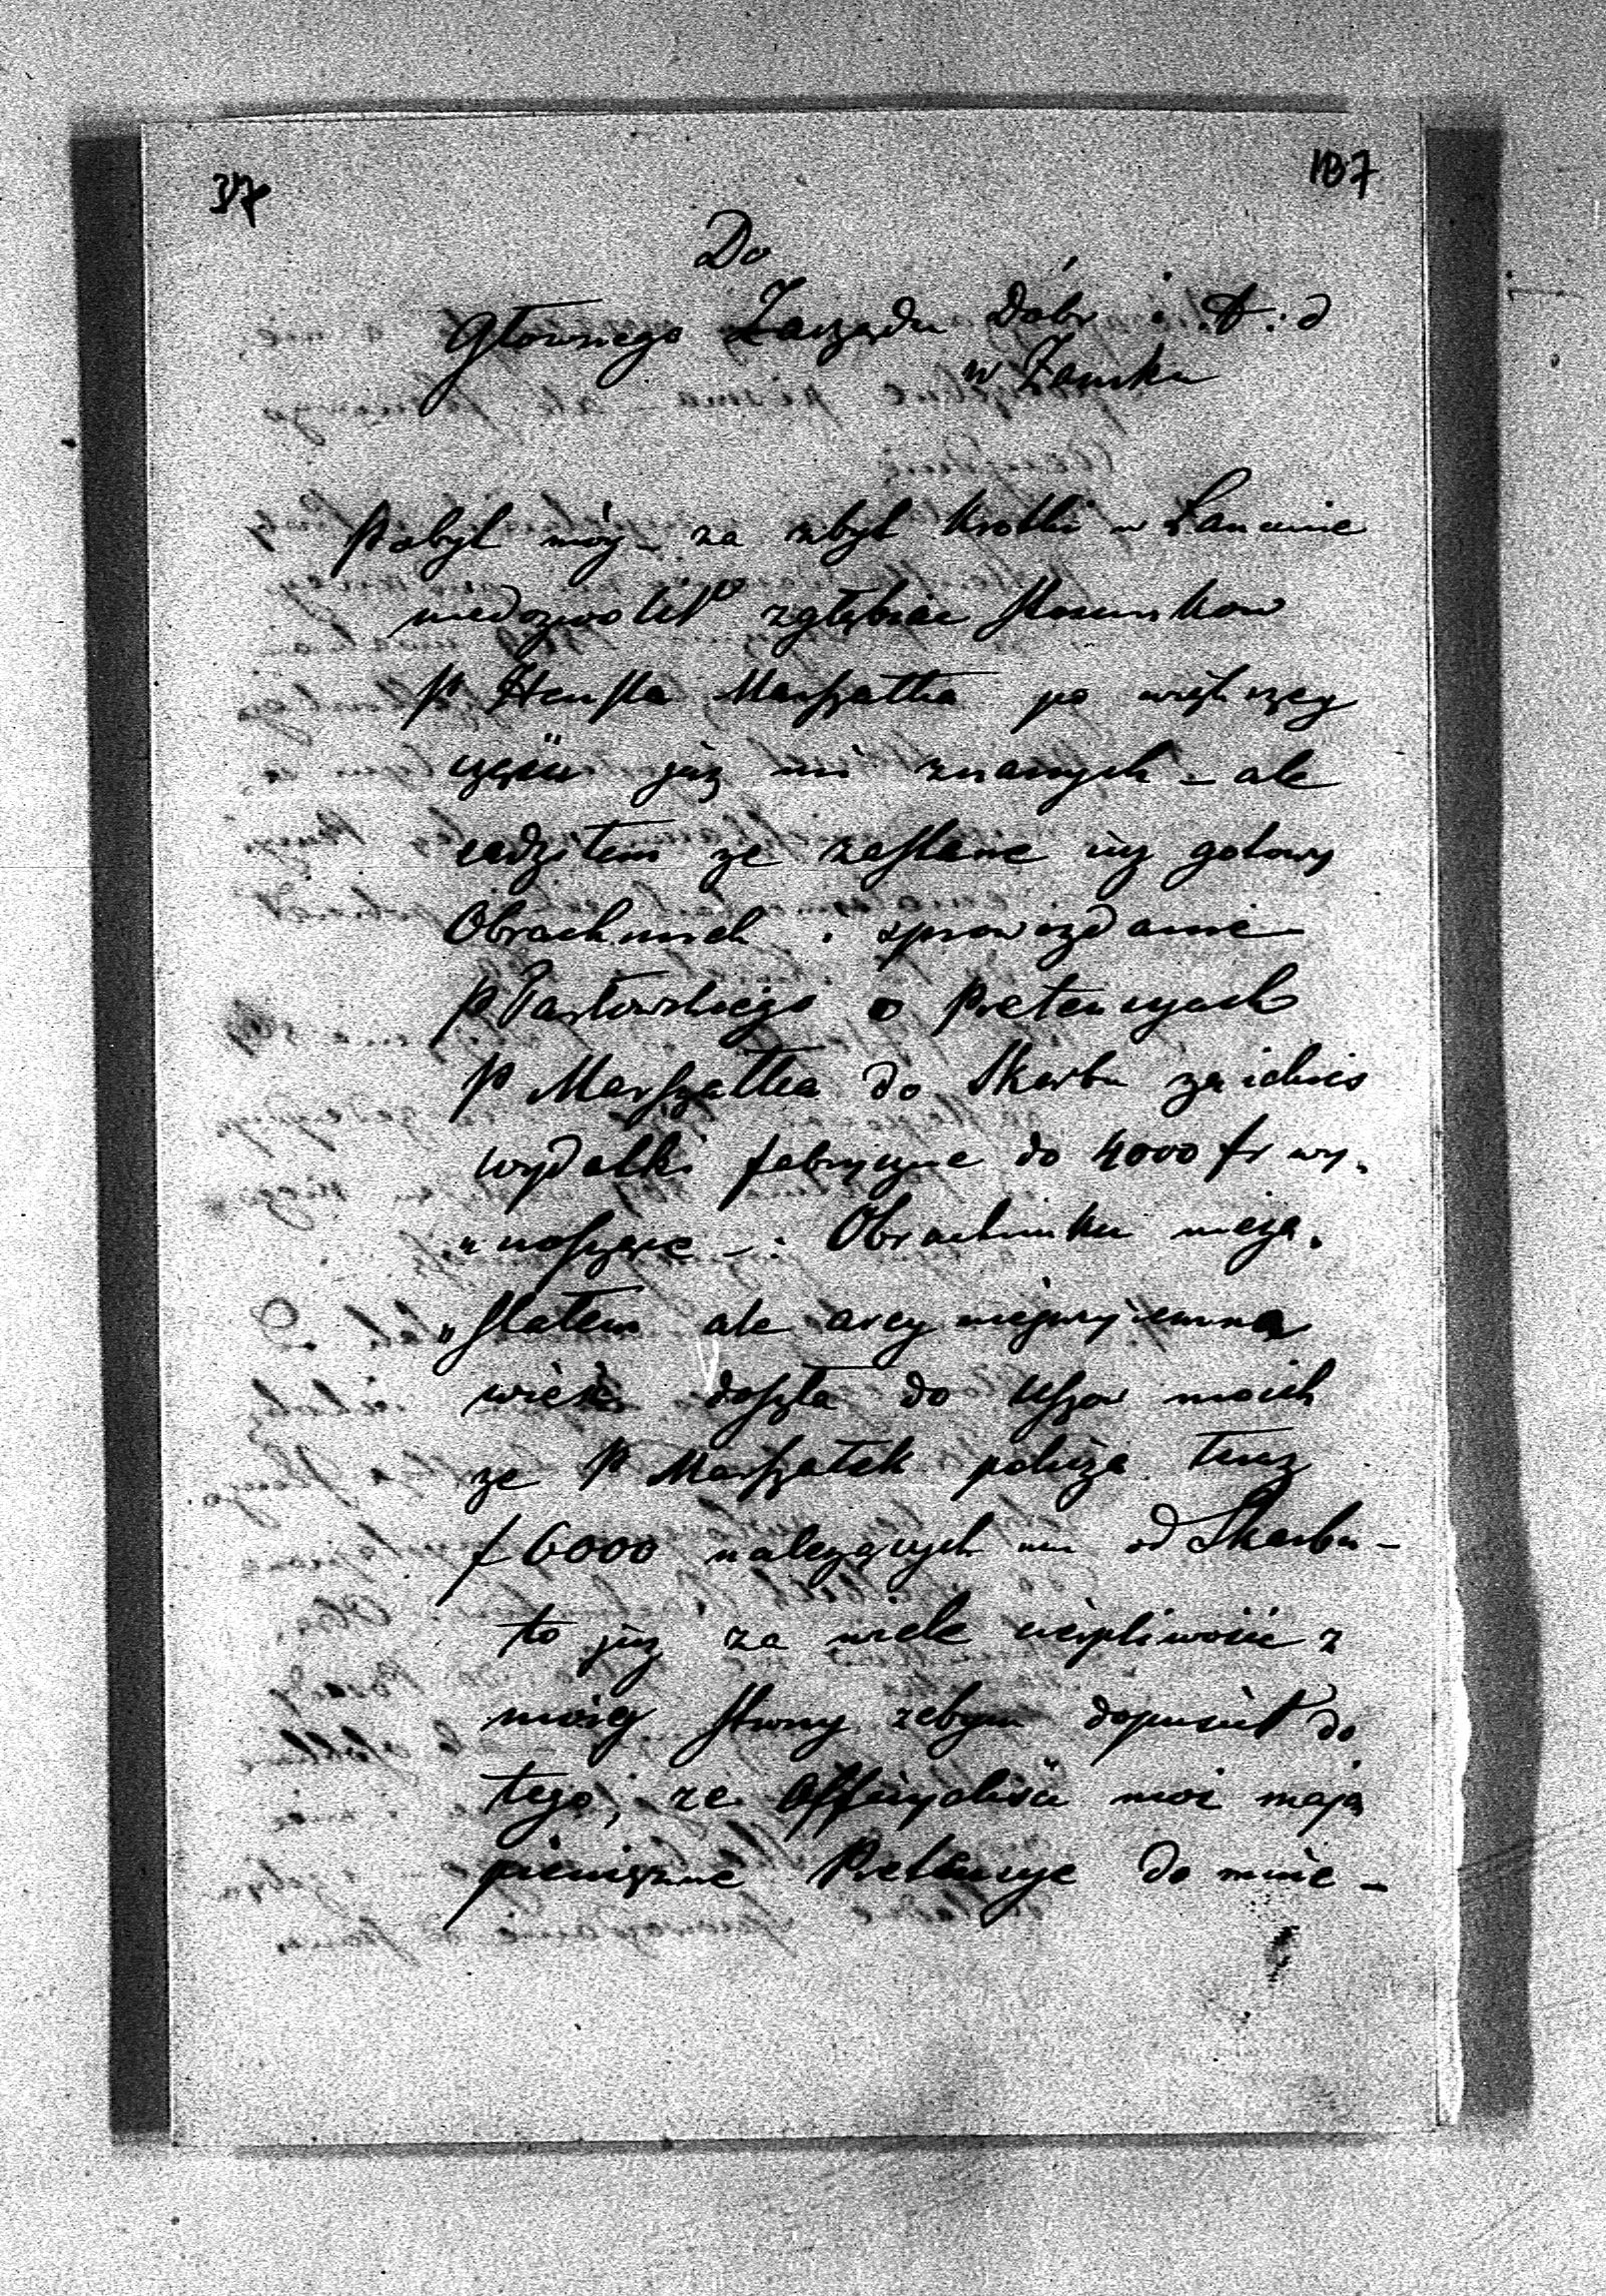 37
107
Do
Głównego Zarządu Dóbr i. t. d
w Zamku
Pobyt mój – za zbyt krotki w
niedozwolił zgłębiac stosunkow
P Marszałka po większey
części już mi znanych – ale
sądziłem ze zastane iuż gotowy
Obrachunek i sprawozdanie
P o Pretensyach
P Marszałka do Skarbu za
wydatki fabryczne do 4000 fr wy„
„noszące – : Obrachunku nieza„
„stałem ale arcy nieprzyiemna
wieść doszła do Uszow moich
ze P Marszałek teraz
f 6000 należących mu od Skarbu –
to już za wiele cierpliwości z
moiey strony zebym dopuścił do
tego, ze Officyaliści moi mają
pieniężne Pretensye do mnie –